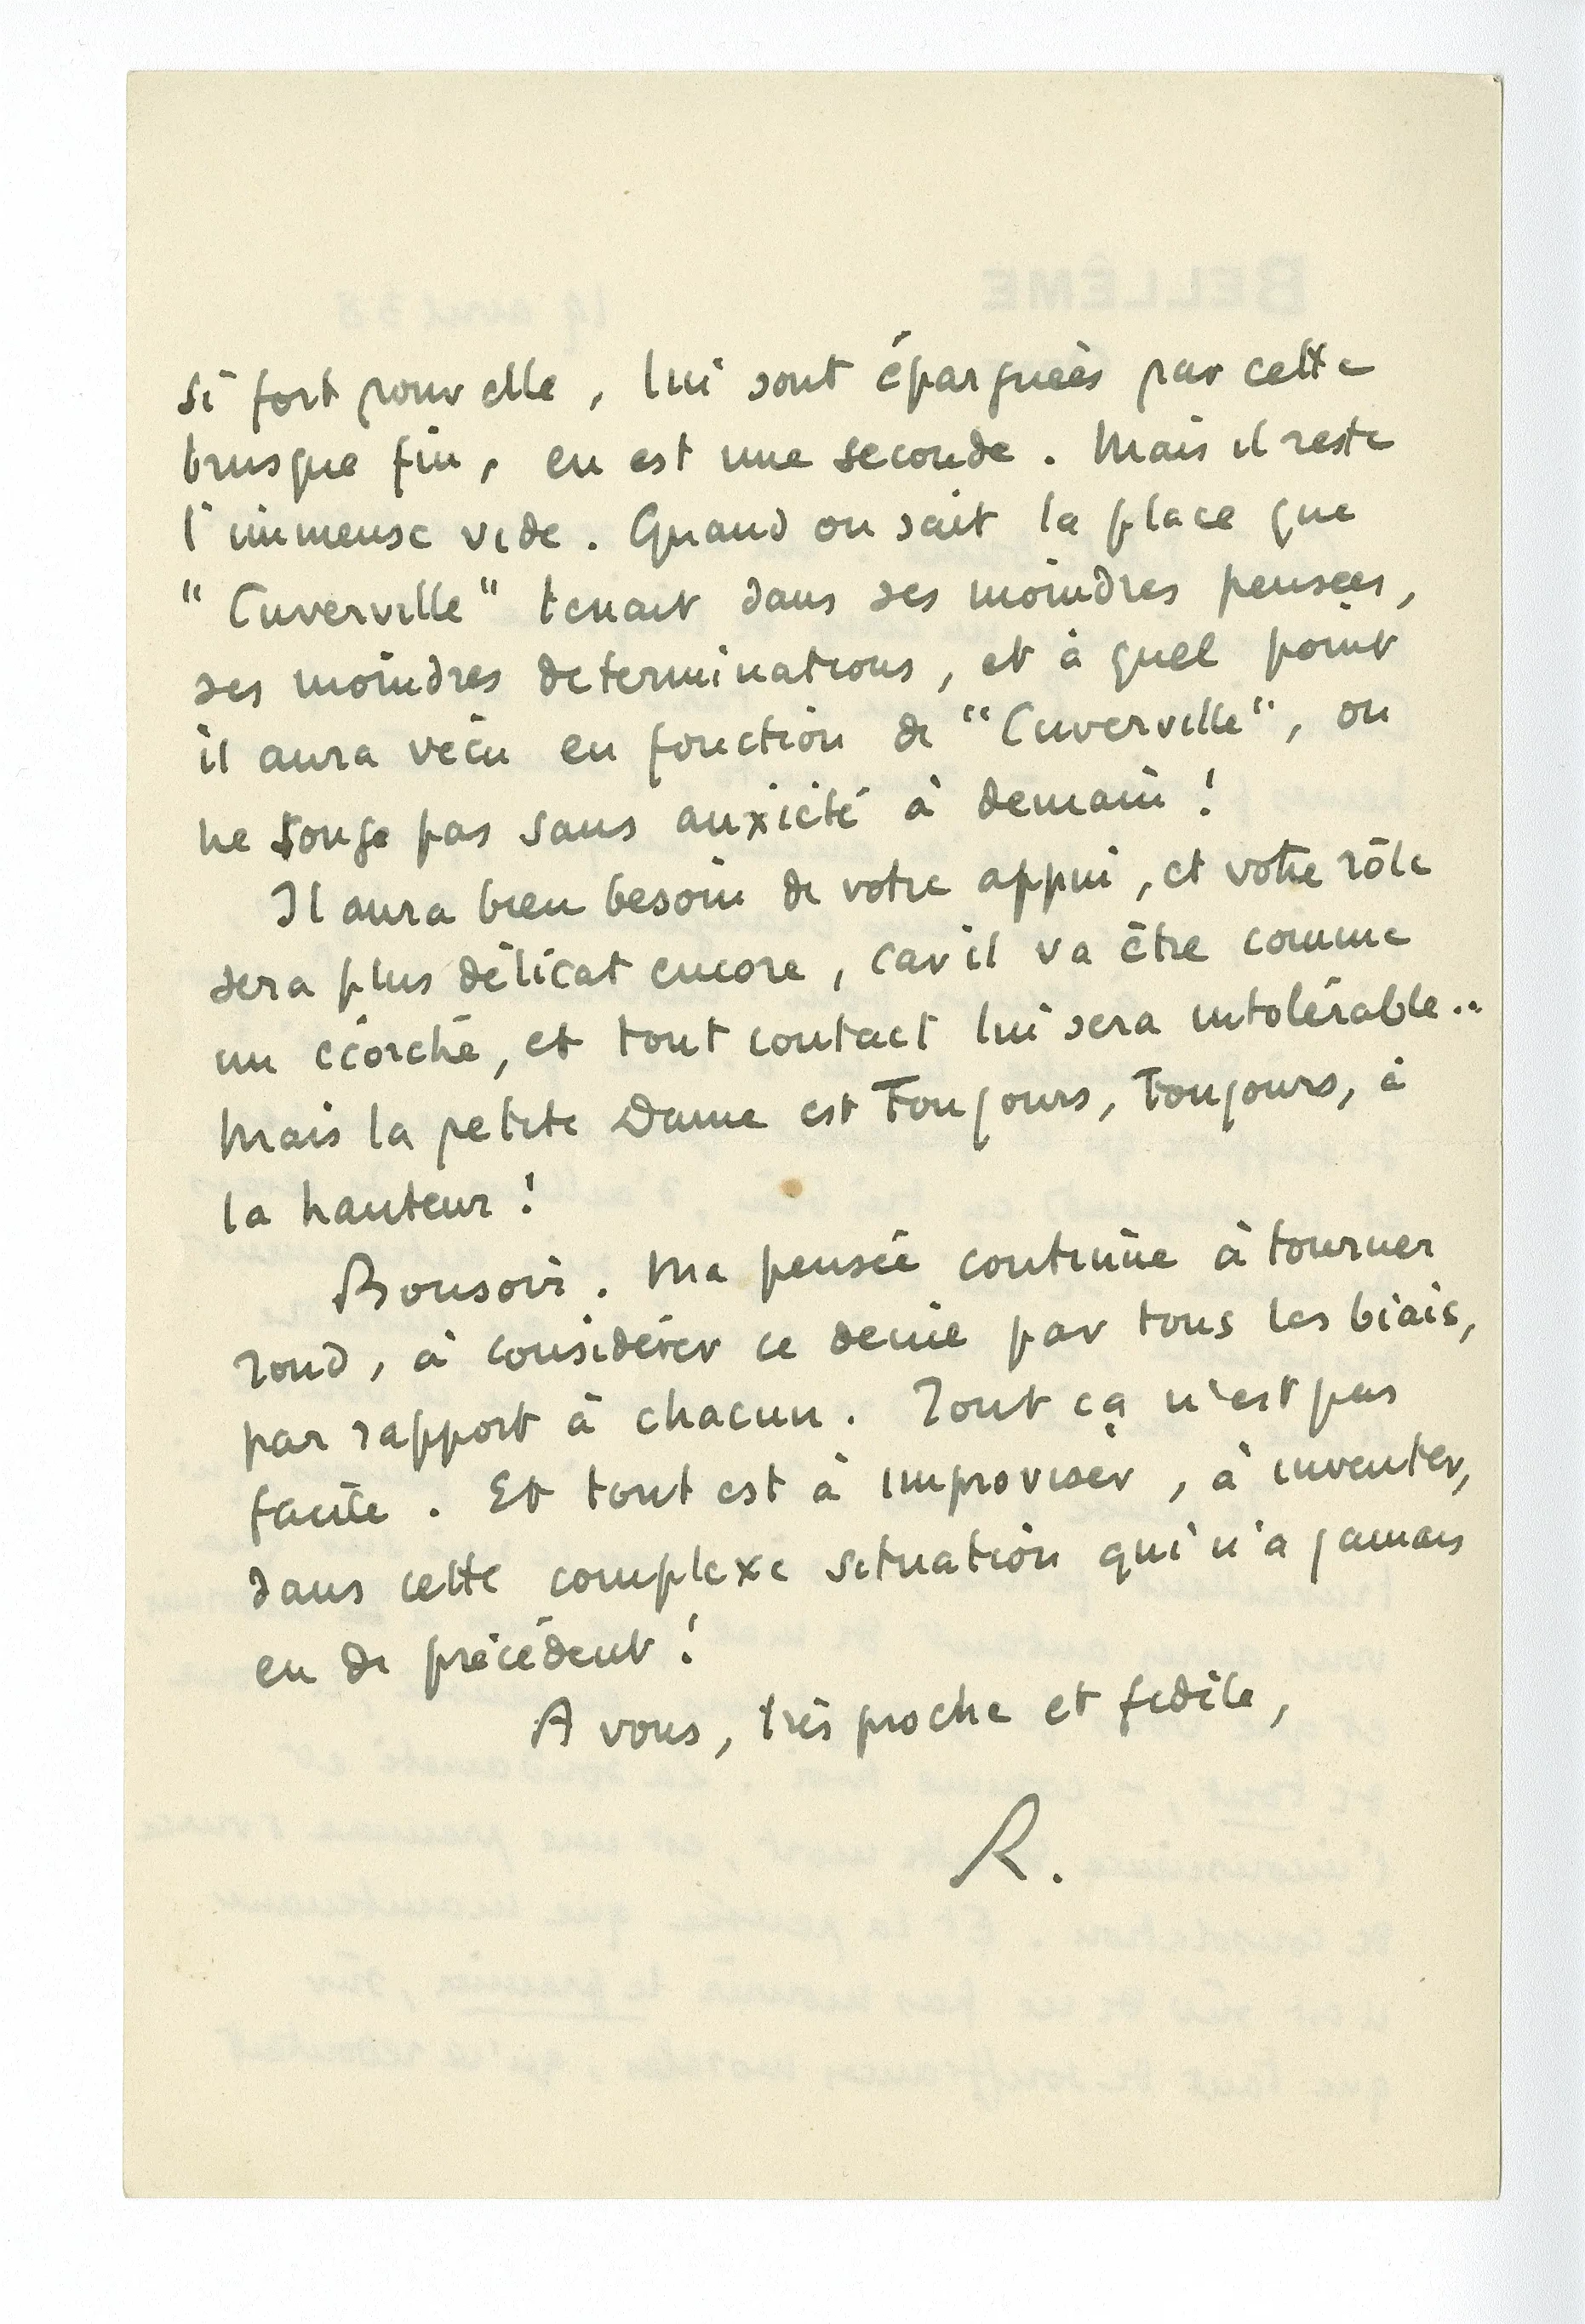 si fort pour elle, lui sont épargnées par cette
brusque fin, en est une seconde. Mais il reste
l'immense vide. Quand on sait la place que
"Cuverville" tenait dans ses moindres pensées,
ses moindres déterminations, et à quel point
il aura vécu en fonction de "Cuverville", on
ne songe pas sans anxiété à demain !
Il aura bien besoin de votre appui, et votre rôle
sera plus délicat encore, car il va être comme
un écorché, et tout contact lui sera intolérable..
Mais la petite Dame est Toujours, Toujours, à
la hauteur !
Bonsoir. Ma pensée continue à tourner
rond, à considérer ce deuil par tous les biais,
par rapport à chacun. Tout ça n'est pas
facile. Et tout est à improviser, à inventer,
dans cette complexe situation qui n'a jamais
eu de précédent !
A vous, très proche et fidèle,
R.
BELLÊME
19 avril 38